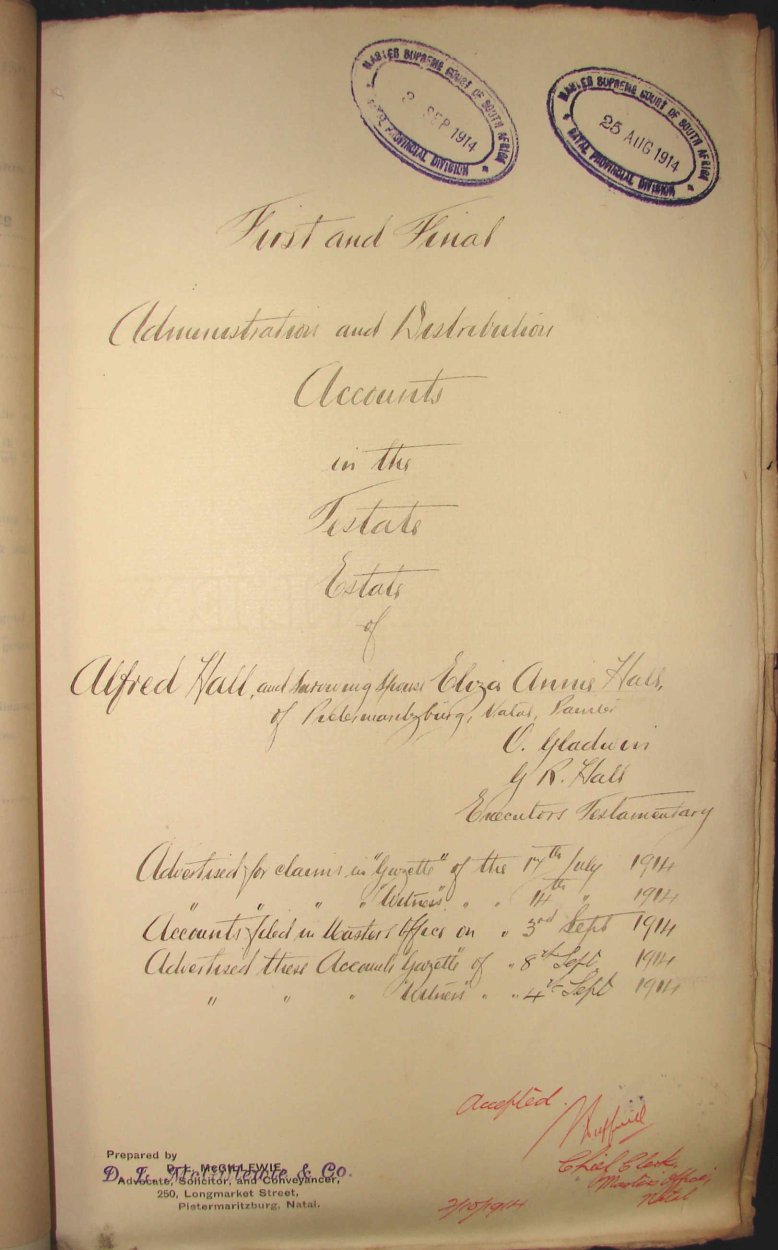 MASTER SUPREME COURT OF SOUTH AFRICA
2 SEP 1914
NATAL PROVINCIAL DIVISION
MASTER SUPREME COURT OF SOUTH AFRICA
25 AUG 1914
NATAL PROVINCIAL DIVISION
First and Final
Administration and Distribution
Accounts
in the
Testate
Estate
of
Alfred Hall, and Surviving Spouse Eliza Annie Hall,
of Pietermaritzburg, Natal,
O. Gladwin
G R. Hall
Executors Testamentary
Advertised for claims in "Gazette" of the 17th July 1914
" " " " "Witness" " " 14th " 1914
Accounts filed in Masters Office on " 3rd Sept 1914
Advertised these Accounts "Gazette" of " 8th Sept 1914
" " " "Witness" " " 4th Sept 1914
Accepted.
Chief Clerk,
Masters Office,
Natal
2/10/1914
Prepared by
D. E. McGILLEWIE,
D. E. McGillewie & Co.
Advocate, Solicitor, and Conveyancer,
250, Longmarket Street,
Pietermaritzburg, Natal.